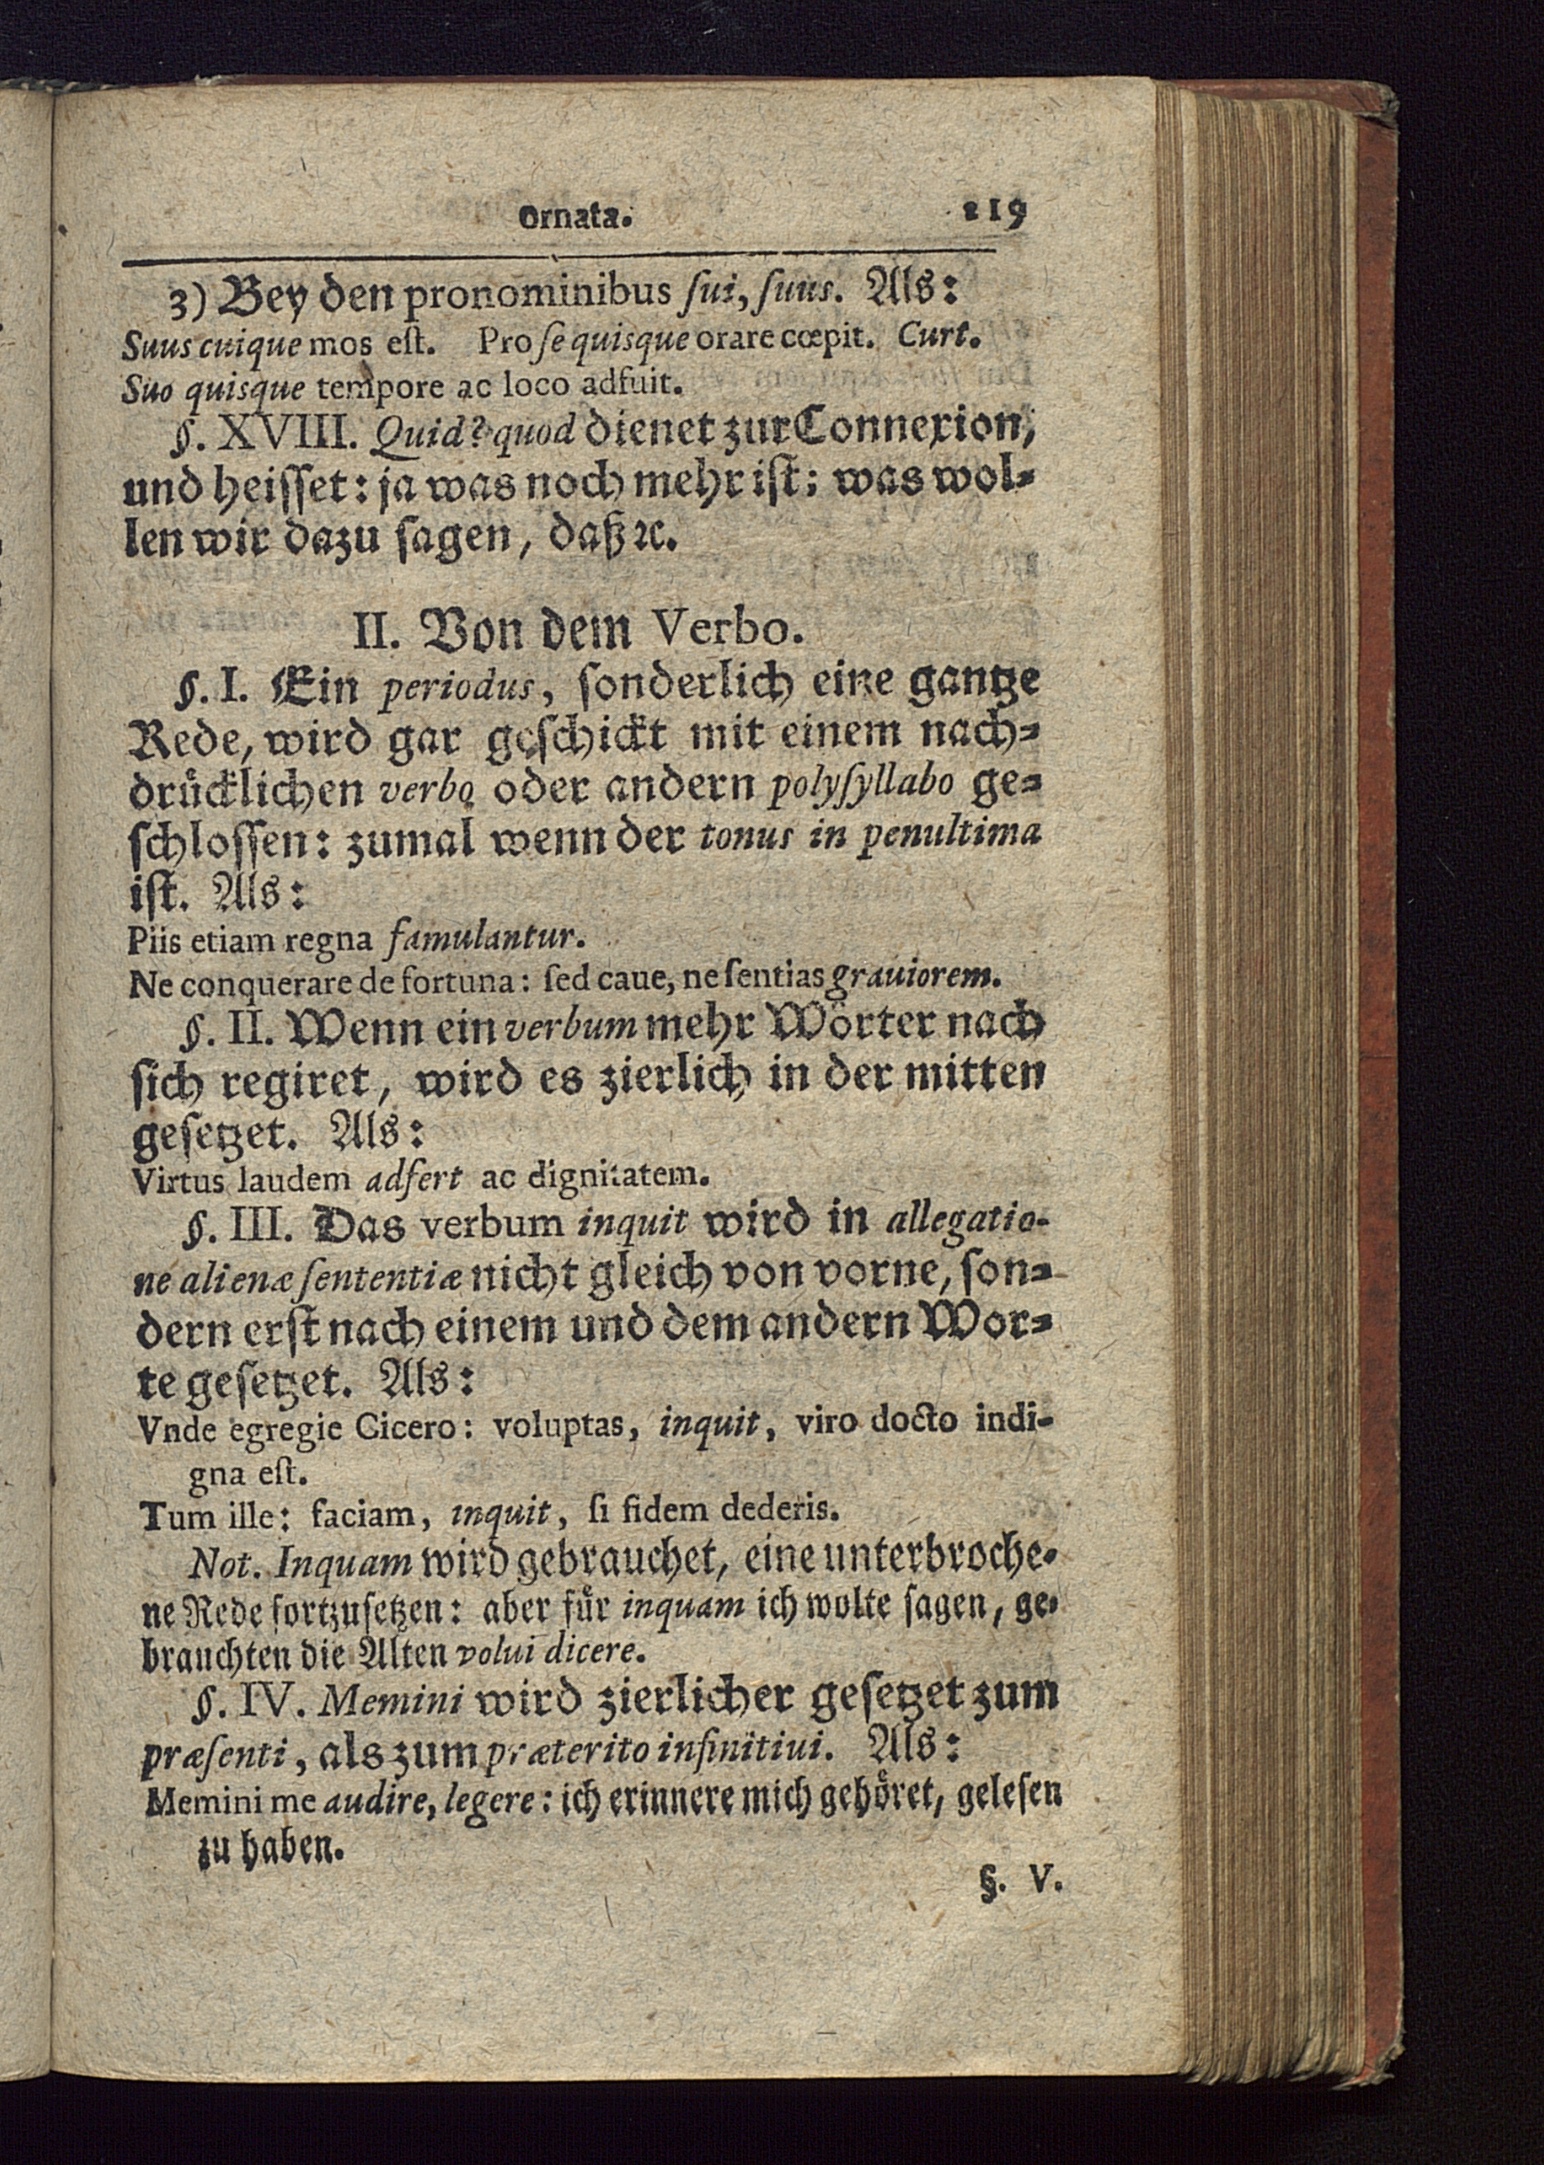 Ornata. 219
3) Bey den pronominibus ſui, ſuus. Als:
Suus cuique mos eſt. Pro ſe quisque orare cœpit. Curt.
Suo quisque tempore ac loco adfuit.
§. XVIII. Quid? quod dienet zur Connexion,
und heiſſet: ja was noch mehr iſt; was wol-
len wir dazu ſagen, daß ꝛc.
II. Von dem Verbo.
§. I. Ein periodus, ſonderlich eine gantze
Rede, wird gar geſchickt mit einem nach-
druͤcklichen verbo oder andern polyſyllabo ge-
ſchloſſen: zumal wenn der tonus in penultima
iſt. Als:
Piis etiam regna famulantur.
Ne conquerare de fortuna: ſed caue, ne ſentias grauiorem.
§. II. Wenn ein verbum mehr Woͤrter nach
ſich regiret, wird es zierlich in der mitten
geſetzet. Als:
Virtus laudem adfert ac dignitatem.
§. III. Das verbum inquit wird in allegatio-
ne alienæ ſententiæ nicht gleich von vorne, ſon-
dern erſt nach einem und dem andern Wor-
te geſetzet. Als:
Vnde egregie Cicero: voluptas, inquit, viro docto indi-
gna eſt.
Tum ille: faciam, inquit, ſi fidem dederis.
Not. Inquam wird gebrauchet, eine unterbroche-
ne Rede fortzuſetzen: aber fuͤr inquam ich wolte ſagen, ge-
brauchten die Alten volui dicere.
§. IV. Memini wird zierlicher geſetzet zum
præſenti, als zum præterito infinitiui. Als:
Memini me audire, legere: ich erinnere mich gehoͤret, geleſen
zu haben.
§. V.